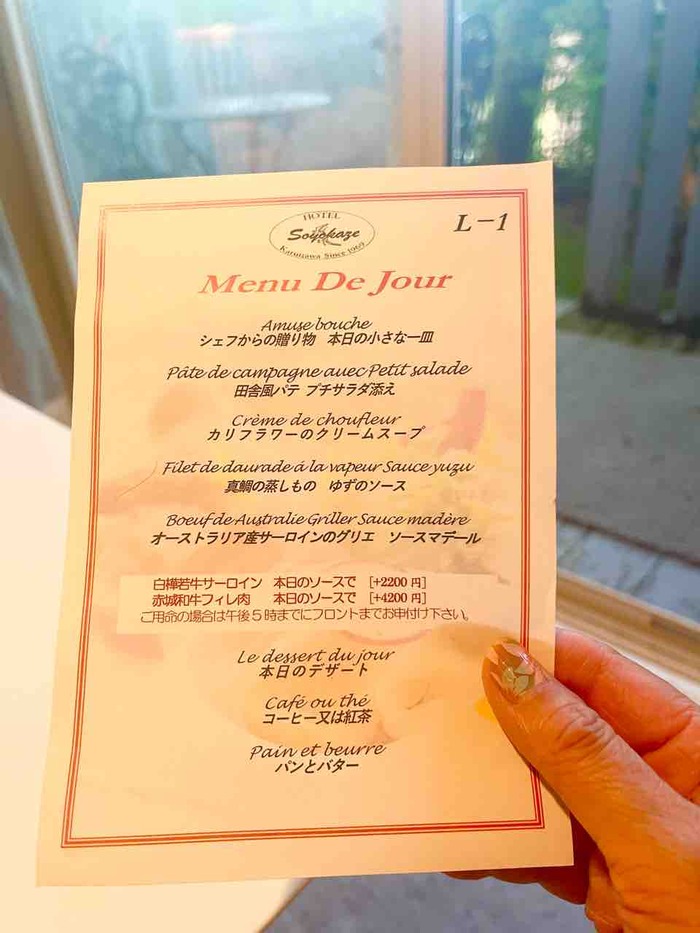 HOTEL
Soyokaze
Karuizawa Since 1969
L-1
Menu De Jour
Amuse bouche
シェフからの贈り物　本日の小さな一皿
Pâte de campagne auec Petit salade
田舎風パテ プチサラダ添え
Crème de choufleur
カリフラワーのクリームスープ
Filet de daurade á la vapeur Sauce yuzu
真鯛の蒸しもの　ゆずのソース
Boeuf de Australie Griller Sauce madère
オーストラリア産サーロインのグリエ　ソースマデール
白樺若牛サーロイン　本日のソースで　[+2200 円]
赤城和牛フィレ肉　本日のソースで　[+4200 円]
ご用命の場合は午後５時までにフロントまでお申付け下さい。
Le dessert du jour
本日のデザート
Café ou thé
コーヒー又は紅茶
Pain et beurre
パンとバター